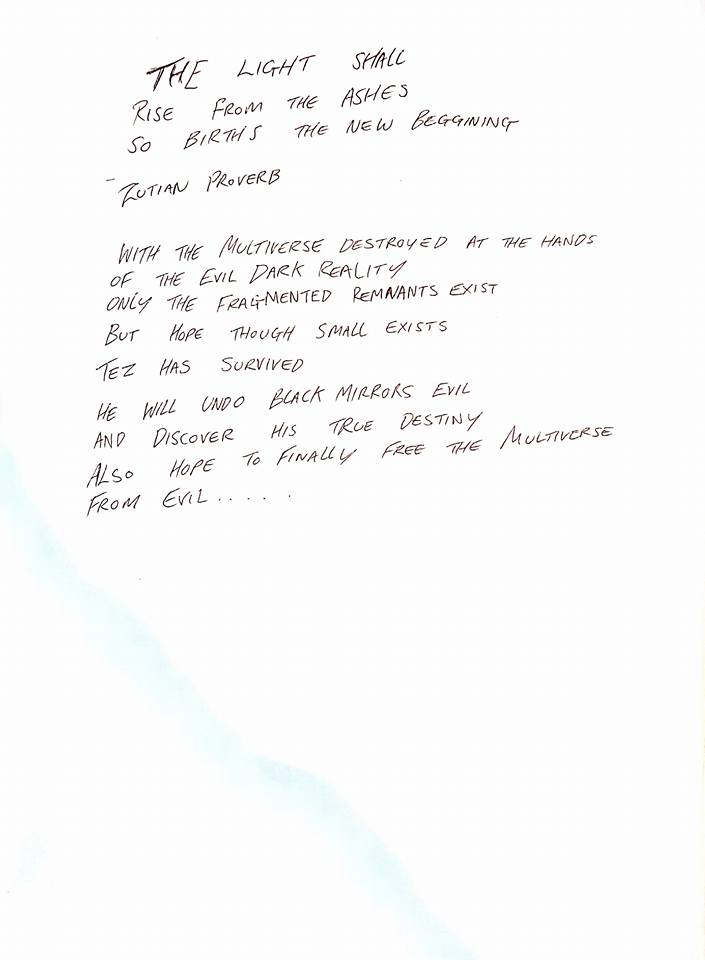 THE LIGHT SHALL
RISE FROM THE ASHES
SO BIRTHS THE NEW BEGGINING
- ZUTIAN PROVERB
WITH THE MULTIVERSE DESTROYED AT THE HANDS
OF THE EVIL DARK REALITY
ONLY THE FRAGMENTED REMNANTS EXIST
BUT HOPE THOUGH SMALL EXISTS
TEZ HAS SURVIVED
HE WILL UNDO BLACK MIRRORS EVIL
AND DISCOVER HIS TRUE DESTINY
ALSO HOPE TO FINALLY FREE THE MULTIVERSE
FROM EVIL.....